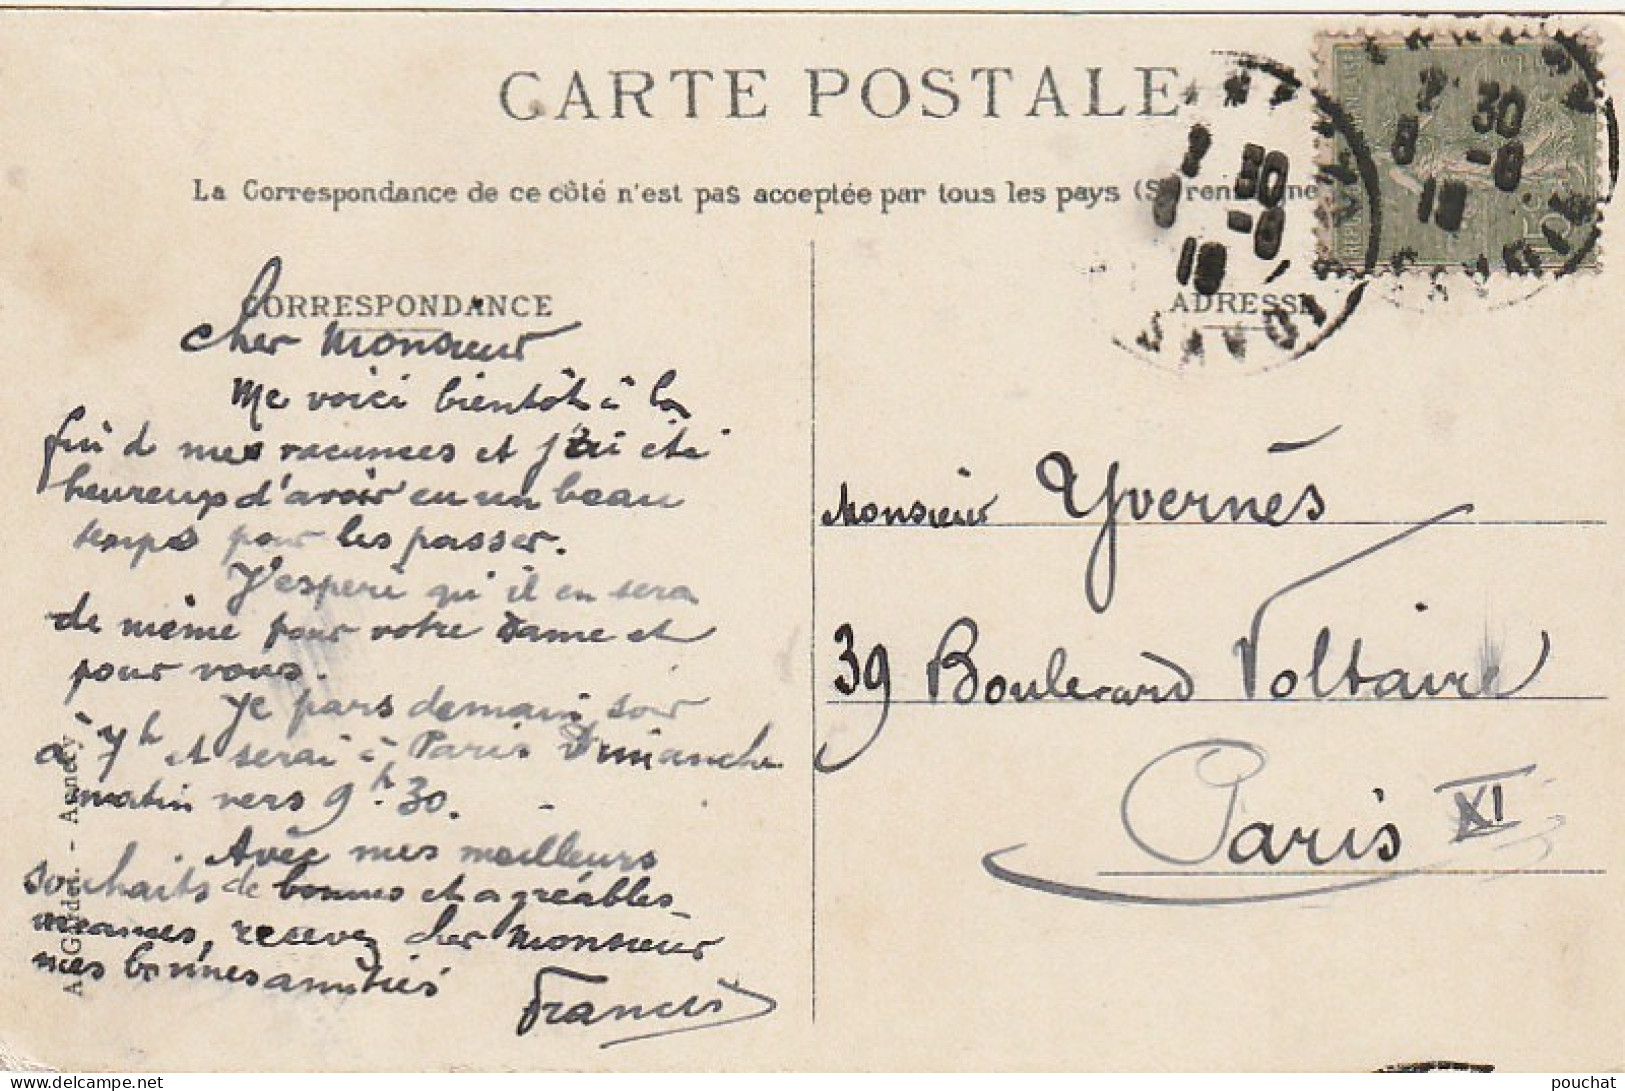 CARTE POSTALE
La Correspondance de ce côté n'est pas acceptée par tous les pays (Se
CORRESPONDANCE
ADRESSE
Cher Monsieur
Me voici bientôt à la
fin de mes vacances et j'ai été
heureux d'avoir eu un beau
temps pour les passer.
J'espere qu'il en sera
de même pour votre Dame et
pour vous.
Je pars demain soir
à 7h et serai à Paris Dimanche
matin vers 9h.30.
Avec mes meilleurs
souhaits de bonnes et agréables
vacances, recevez cher Monsieur
mes bonnes amitiés
Francis
Monsieur Yvernès
39 Boulevard Voltaire
Paris XI
7 30
8 -8
19
SAVOIE
7 30
8 -8
19
SAVOIE
15c
A. Gardet. - Annecy
pouchat